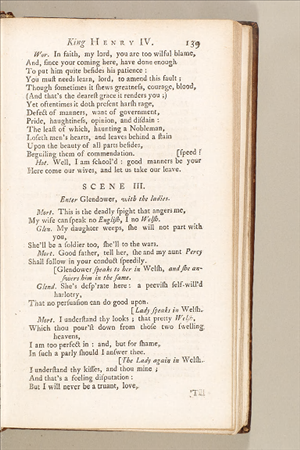 King HENRY IV. 139
Wor. In faith, my lord, you are too wilful blame,
And, since your coming here, have done enough
To put him quite besides his patience:
You must needs learn, lord, to amend this fault;
Though sometimes it shews greatness, courage, blood,
(And that's the dearest grace it renders you;)
Yet oftentimes it doth present harsh rage,
Defect of manners, want of government,
Pride, haughtiness, opinion, and disdain:
The least of which, haunting a Nobleman,
Loseth men's hearts, and leaves behind a stain
Upon the beauty of all parts besides,
Beguiling them of commendation. [speed!
Hot. Well, I am school'd: good manners be your
Here come our wives, and let us take our leave.
SCENE III.
Enter Glendower, with the ladies.
Mort. This is the deadly spight that angers me,
My wife can speak no English, I no Welsh.
Glen. My daughter weeps, she will not part with
you,
She'll be a soldier too, she'll to the wars.
Mort. Good father, tell her, she and my aunt Percy
Shall follow in your conduct speedily.
[Glendower speaks to her in Welsh, and she an-
swers him in the same.
Glend. She's desp'rate here: a peevish self-will'd
harlotry,
That no persuasion can do good upon.
[Lady speaks in Welsh.
Mort. I understand thy looks; that pretty Welsh,
Which thou pour'st down from those two swelling
heavens,
I am too perfect in: and, but for shame,
In such a parly should I answer thee.
[The Lady again in Welsh.
I understand thy kisses, and thou mine;
And that's a feeling disputation:
But I will never be a truant, love,
[Till